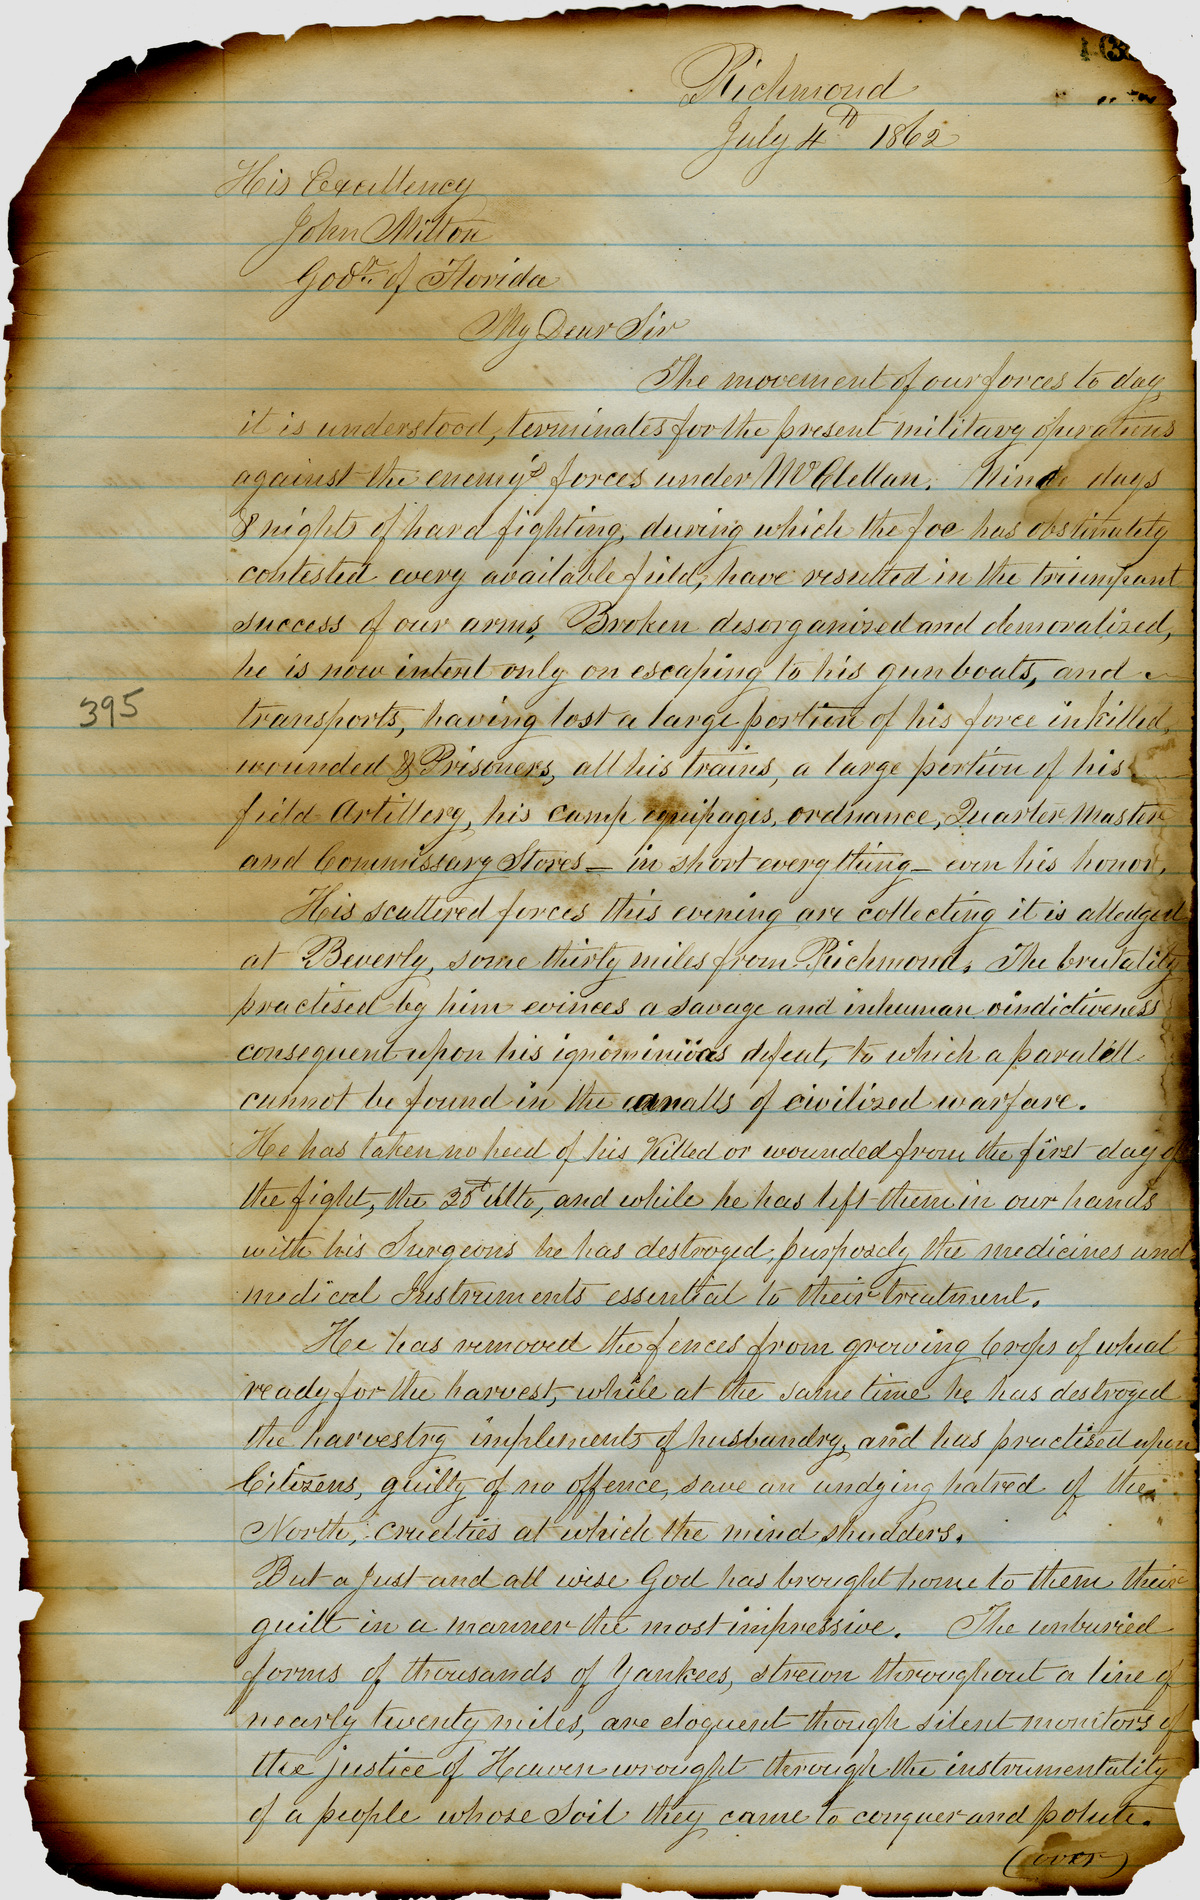 163
Richmond
July 4th 1862
His Excellency
John Milton
Govr. of Florida
My Dear Sir
The movement of our forces to day
it is understood, terminates for the present military operations
against the enemy's forces under McClellan. Nine days
& nights of hard fighting, during which the foe has obstinately
contested every available field, have resulted in the triumpant
success of our arms, Broken desorganized and demoralized,
he is now intent only on escaping to his gun boats, and
transports, having lost a large portion of his force in killed,
395
wounded & Prisoners, all his trains, a large portion of his
field Artillery, his camp equipages, ordnance, Quarter Master
and Commissary Stores – in short every thing – even his honor.
His scattered forces this evening are collecting it is alledged
at Beverly, some thirty miles from Richmond. The brutality
practised by him evinces a savage and inhuman vindictiveness
consequent upon his ignominious defeat, to which a paralell
cannot be found in the annalls of civilized warfare.
He has taken no heed of his Killed or wounded from the first day of
the fight, the 25th Ulto, and while he has left them in our hands
with his Surgeons he has destroyed, purposely the medicines and
medical Instruments essential to their treatment.
He has removed the fences from growing Crops of wheat
ready for the harvest, while at the same time he has destroyed
the harvestry implements of husbandry, and has practised upon
Citizens, guilty of no offence, save an undying hatred of the
North, cruelties at which the mind shudders.
But a just and all wise God has brought home to them their
guilt in a manner the most impressive. The unburied
forms of thousands of Yankees, strewn throughout a line of
nearly twenty miles, are eloquent though silent monitors of
the justice of Heaven wrought through the instrumentality
of a people whose Soil they came to conquer and polute.
(over)